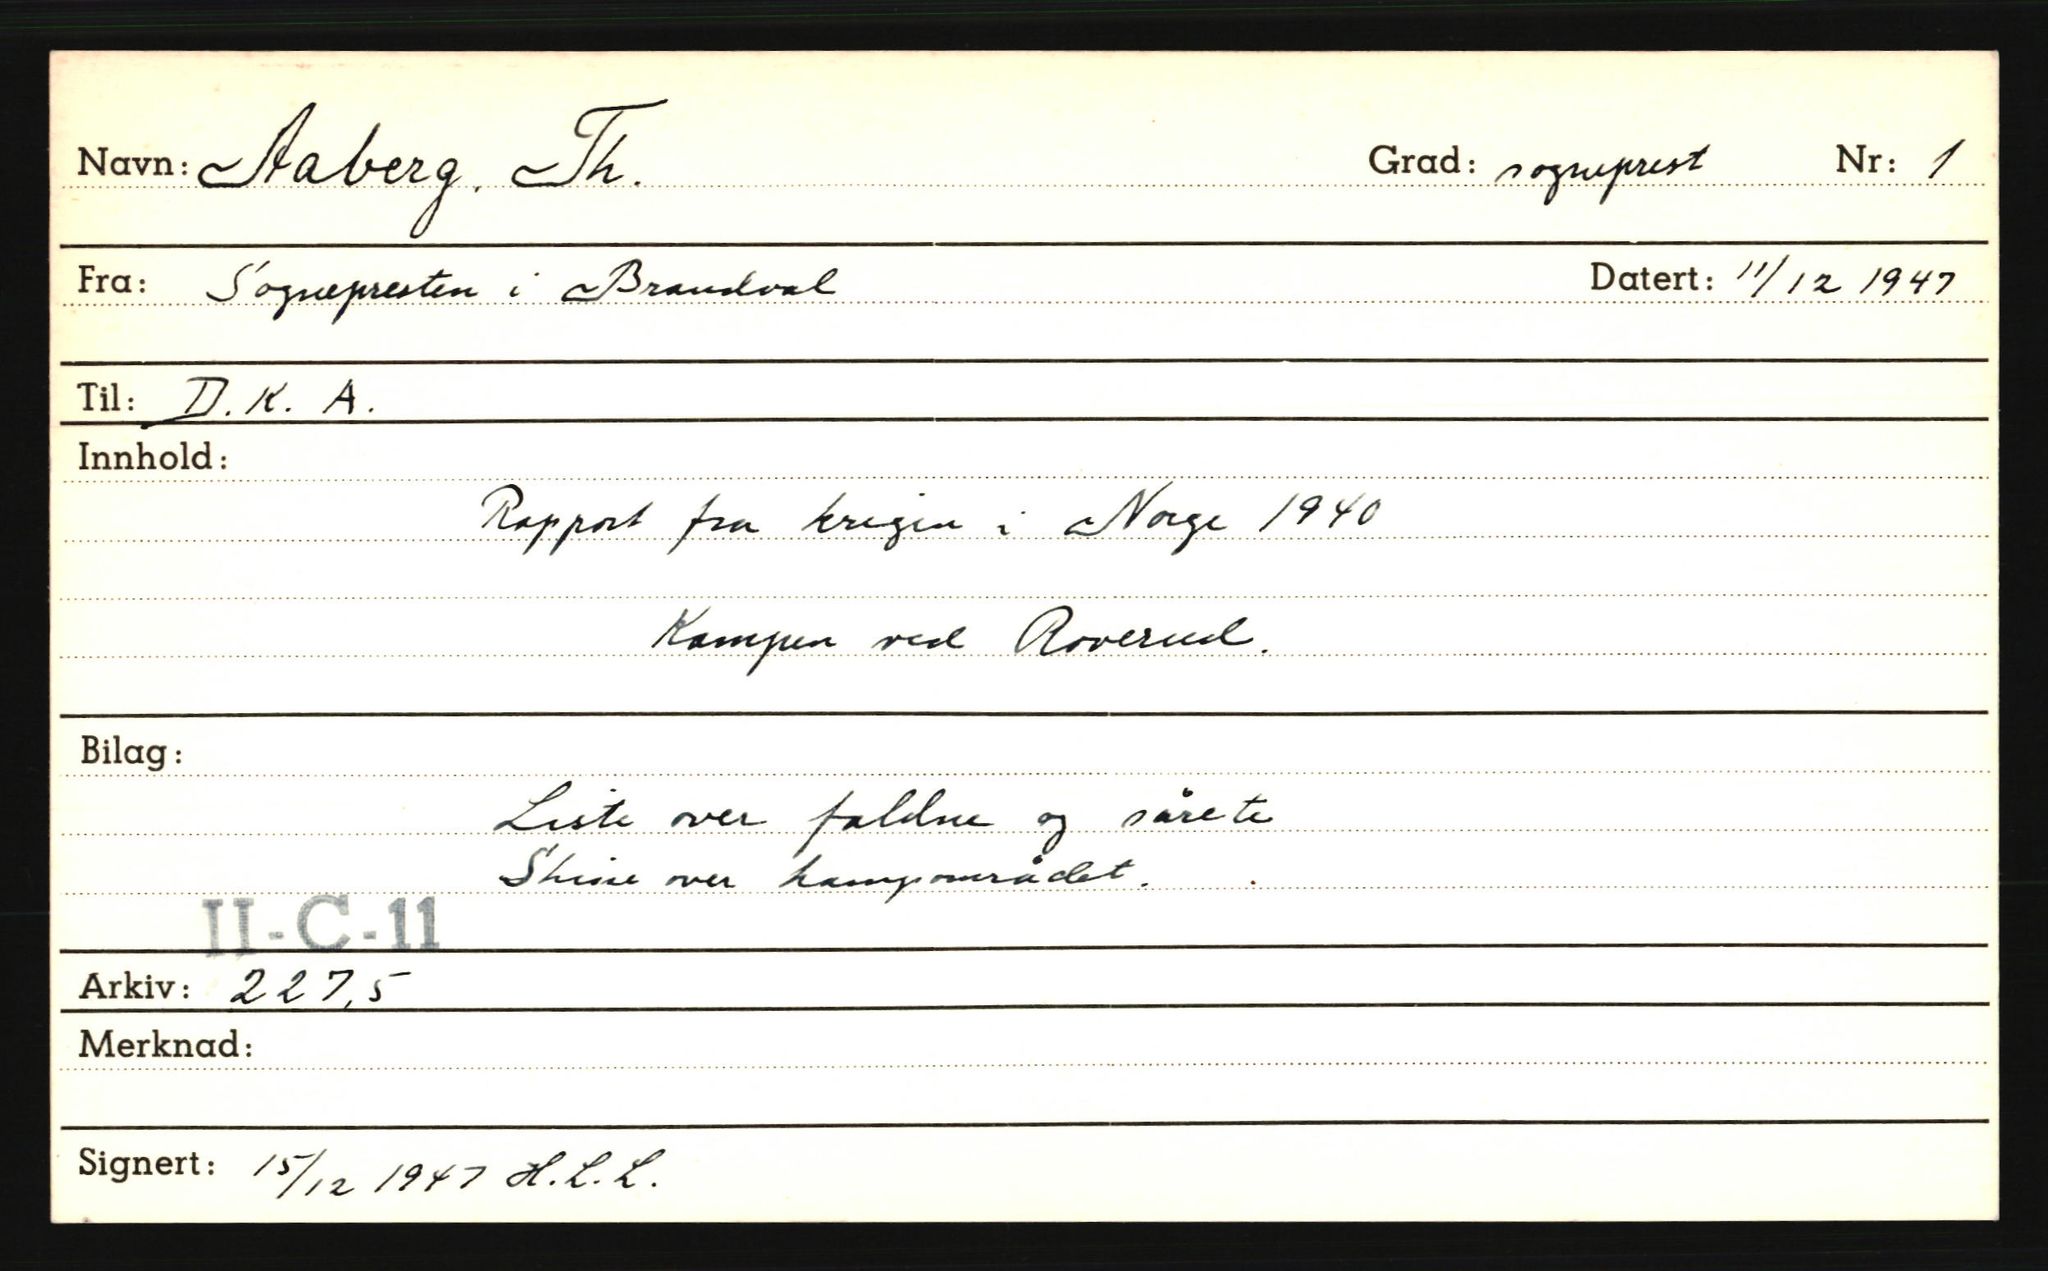 Navn: Aaberg, Th. Grad: sogneprest Nr: 1
Fra: Sognepresten i Brandval Datert: 11/12 1947
Til: D.K.A.
Innhold:
Rapport fra krigen i Norge 1940
Kampen ved Roverud.
Bilag:
Liste over faldne og sårete
Skisse over kampområdet.
II-C-11
Arkiv: 227,5
Merknad:
Signert: 15/12 1947 H.L.L.